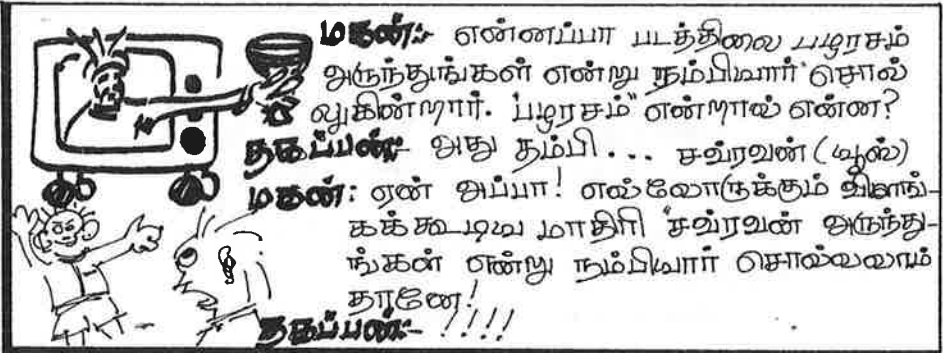 மகன்:- என்னப்பா படத்திலை பழரசம்
அருந்துங்கள் என்று நம்பியார் சொல்
லுகின்றார். "பழரசம்" என்றால் என்ன?
தகப்பன்:- அது தம்பி... சவ்ரவன் (யூஸ்)
மகன்: ஏன் அப்பா! எல்லோருக்கும் விளங்-
கக்கூடிய மாதிரி "சவ்ரவன் அருந்து-
ங்கள் என்று நம்பியார் சொல்லலாம்
தானே!
தகப்பன்:- !!!!